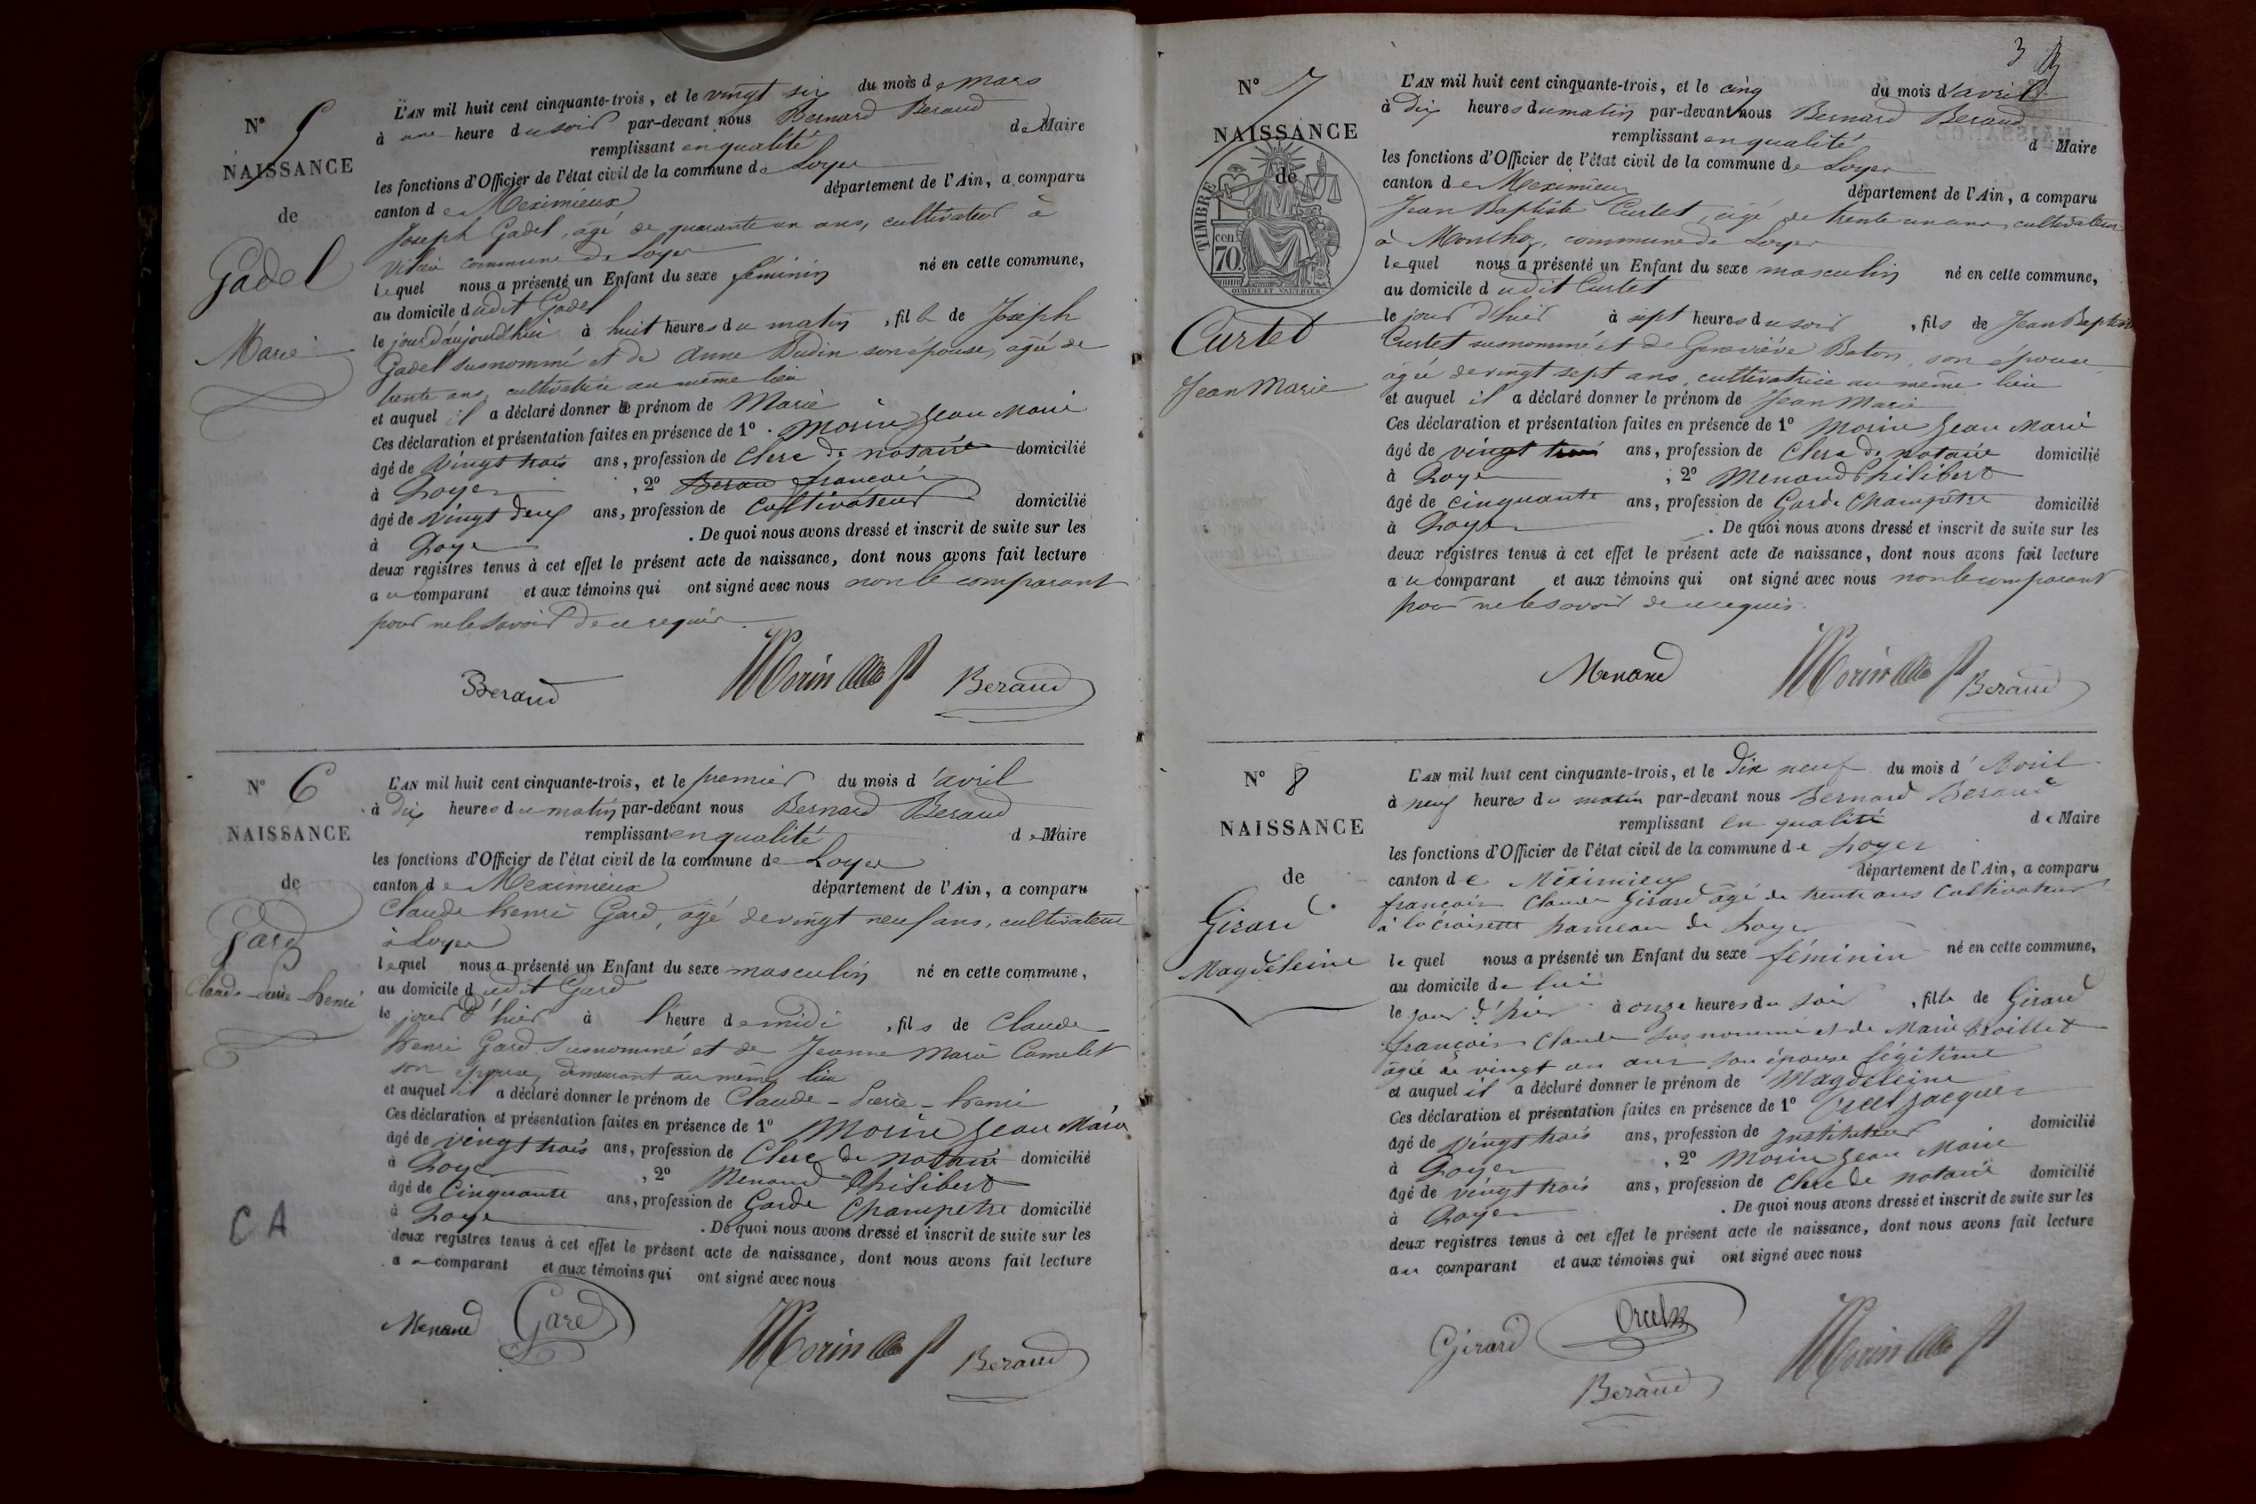 Nº 5
NAISSANCE
de
Gadel
Marie
L'AN mil huit cent cinquante-trois, et le vingt six du mois de mars
à une heure du soir par-devant nous Bernard Beraud
remplissant en qualité de Maire
les fonctions d'Officier de l'état civil de la commune de Loyes
canton de Meximieux département de l'Ain, a comparu
Joseph Gadel, agé de quarante un ans, cultivateur à
commune de Loyes
lequel nous a présenté un Enfant du sexe féminin né en cette commune,
au domicile dudit Gadel
le jour d'aujourd'hui à huit heures du matin, fille de Joseph
Gadel susnommé et de Anne Budin son épouse, agée de
trente ans, cultivatrice au même lieu
et auquel il a déclaré donner le prénom de Marie
Ces déclaration et présentation faites en présence de 1º Morin Jean Marie
âgé de vingt trois ans, profession de Clerc de notaire domicilié
à Loyes, 2º Beraud françois
âgé de vingt deux ans, profession de Cultivateur domicilié
à Loyes. De quoi nous avons dressé et inscrit de suite sur les
deux registres tenus à cet effet le présent acte de naissance, dont nous avons fait lecture
au comparant et aux témoins qui ont signé avec nous non le comparant
pour ne le savoir de ce requis.
Beraud Morin Beraud
Nº 6
NAISSANCE
de
Gard
Claude-Marie-henri
CA
L'AN mil huit cent cinquante-trois, et le premier du mois d'avril
à dix heures du matin par-devant nous Bernard Beraud
remplissant en qualité de Maire
les fonctions d'Officier de l'état civil de la commune de Loyes
canton de Meximieux département de l'Ain, a comparu
Claude henri Gard, agé de vingt neuf ans, cultivateur
à Loyes
lequel nous a présenté un Enfant du sexe masculin né en cette commune,
au domicile dudit Gard
le jour d'hier à l'heure de midi, fils de Claude
henri Gard susnommé et de Jeanne Marie Camelet
son épouse, demeurant au même lieu
et auquel il a déclaré donner le prénom de Claude - - henri
Ces déclaration et présentation faites en présence de 1º Morin Jean Marie
âgé de vingt trois ans, profession de Clerc de notaire domicilié
à Loyes, 2º Menand Philibert
âgé de Cinquante ans, profession de Garde Champetre domicilié
à Loyes. De quoi nous avons dressé et inscrit de suite sur les
deux registres tenus à cet effet le présent acte de naissance, dont nous avons fait lecture
au comparant et aux témoins qui ont signé avec nous
Menand Gard Morin Beraud
3
Nº 7
NAISSANCE
de
TIMBRE
cen 70
Curtet
Jean Marie
L'AN mil huit cent cinquante-trois, et le cinq du mois d'avril
à dix heures du matin par-devant nous Bernard Beraud
remplissant en qualité d Maire
les fonctions d'Officier de l'état civil de la commune de Loyes
canton de Meximieux département de l'Ain, a comparu
Jean Baptiste Curtet, agé de trente un ans, cultivateur
à Monthoz, commune de Loyes
lequel nous a présenté un Enfant du sexe masculin né en cette commune,
au domicile dudit Curtet
le jour d'hier à sept heures du soir, fils de Jean Baptiste
Curtet susnommé et de Geneviève Baton, son épouse
agée de vingt sept ans, cultivatrice au même lieu
et auquel il a déclaré donner le prénom de Jean Marie
Ces déclaration et présentation faites en présence de 1º Morin Jean Marie
âgé de vingt trois ans, profession de Clerc de notaire domicilié
à Loyes, 2º Menand Philibert
âgé de cinquante ans, profession de Garde Champêtre domicilié
à Loyes. De quoi nous avons dressé et inscrit de suite sur les
deux registres tenus à cet effet le présent acte de naissance, dont nous avons fait lecture
au comparant et aux témoins qui ont signé avec nous non le comparant
pour ne le savoir de ce requis.
Menand Morin Beraud
Nº 8
NAISSANCE
de
Girard
Magdeleine
L'AN mil huit cent cinquante-trois, et le Dix neuf du mois d'Avril
à neuf heures du matin par-devant nous Bernard Beraud
remplissant en qualité de Maire
les fonctions d'Officier de l'état civil de la commune de Loyes
canton de Méximieux département de l'Ain, a comparu
françois Claude Girard âgé de trente ans Cultivateur
à la Croisette hameau de Loyes
lequel nous a présenté un Enfant du sexe féminin né en cette commune,
au domicile de lui
le jour d'hier à onze heures du soir, fille de Girard
françois Claude susnommé et de Marie
agée de vingt un ans son épouse légitime
et auquel il a déclaré donner le prénom de Magdeleine
Ces déclaration et présentation faites en présence de 1º Orcel Jacques
âgé de vingt trois ans, profession de Instituteur domicilié
à Loyes, 2º Morin Jean Marie
âgé de vingt trois ans, profession de Clerc de notaire domicilié
à Loyes. De quoi nous avons dressé et inscrit de suite sur les
deux registres tenus à cet effet le présent acte de naissance, dont nous avons fait lecture
au comparant et aux témoins qui ont signé avec nous
Girard Orcel Morin
Beraud